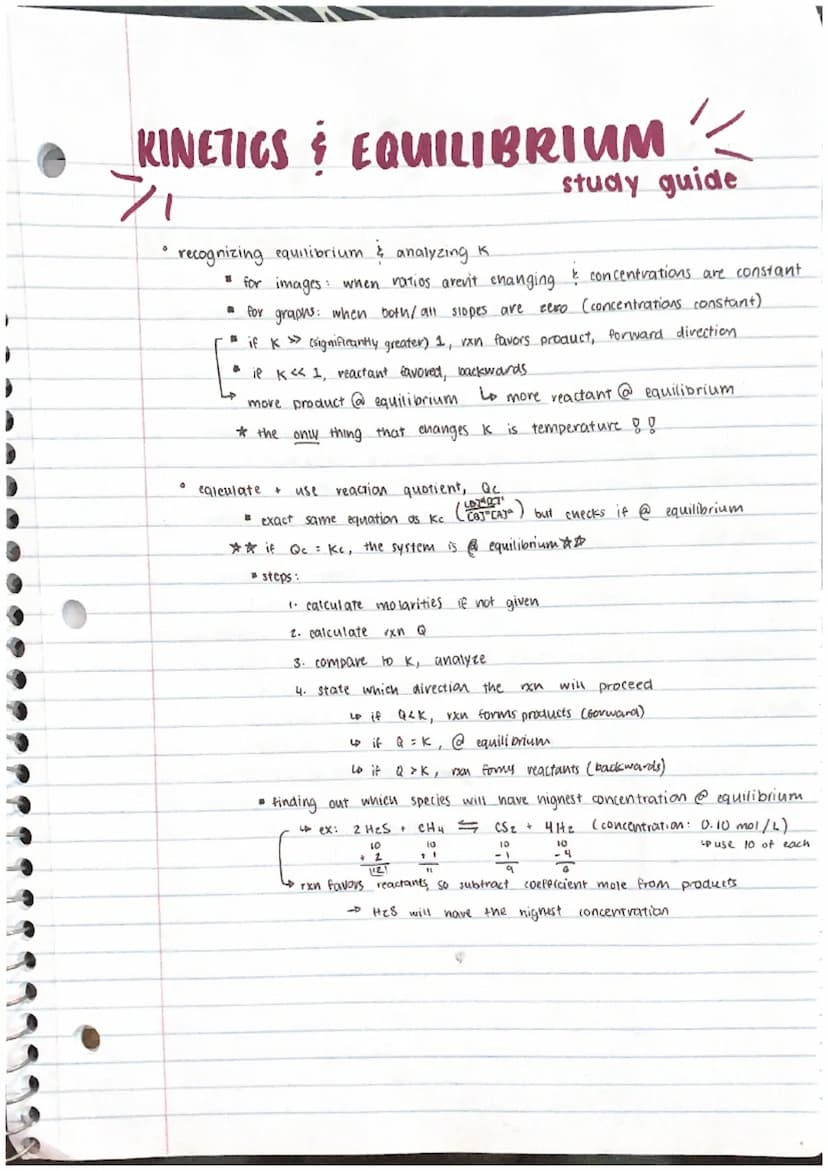 KINETICS & EQUILIBRIUM
study guide
° recognizing equilibrium & analyzing K
▪ for images: when ratios aren't changing & concentrations are constant
▪ for graphs: when both/all slopes are zero (concentrations constant)
▪ if K >> (significantly greater) 1, rxn favors product, forward direction
▪ if K << 1, reactant favored, backwards
↳ more product @ equilibrium ↳ more reactant @ equilibrium
* the only thing that changes K is temperature !!
° calculate + use reaction quotient, Qc
▪ exact same equation as Kc ([D]ᵈ[C]ᶜ/[B]ᵇ[A]ᵃ) but checks if @ equilibrium
☆☆ if Qc = Kc, the system is @ equilibrium ☆☆
▪ steps:
1. calculate molarities if not given
2. calculate rxn Q
3. compare to K, analyze
4. state which direction the rxn will proceed
↳ if Q<K, rxn forms products (forward)
↳ if Q = K, @ equilibrium
↳ if Q > K, rxn forms reactants (backwards)
▪ finding out which species will have highest concentration @ equilibrium
↳ ex: 2 H₂S + CH₄ ⇌ CS₂ + 4H₂ (concentration: 0.10 mol/L)
10 10 10 10 ↳ use 10 of each
+ 2 + 1 - 1 - 4
12 11 9 6
↳ rxn favors reactants, so subtract coefficient mole from products
→ H₂S will have the highest concentration